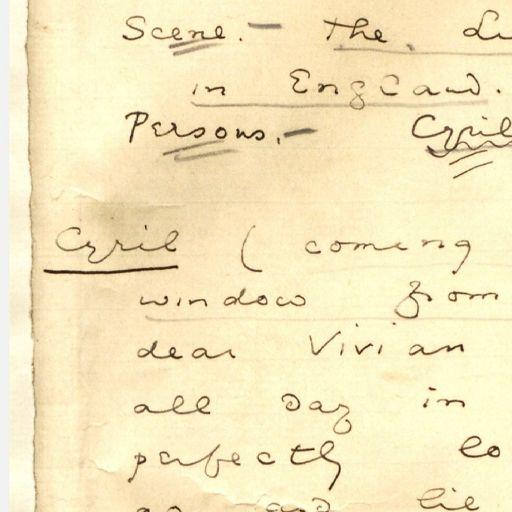 Scene. – The
in England.
Persons. – Cyril
Cyril ( comeing
window from
dear Vivian
all day in
perfectly lo
go and lie